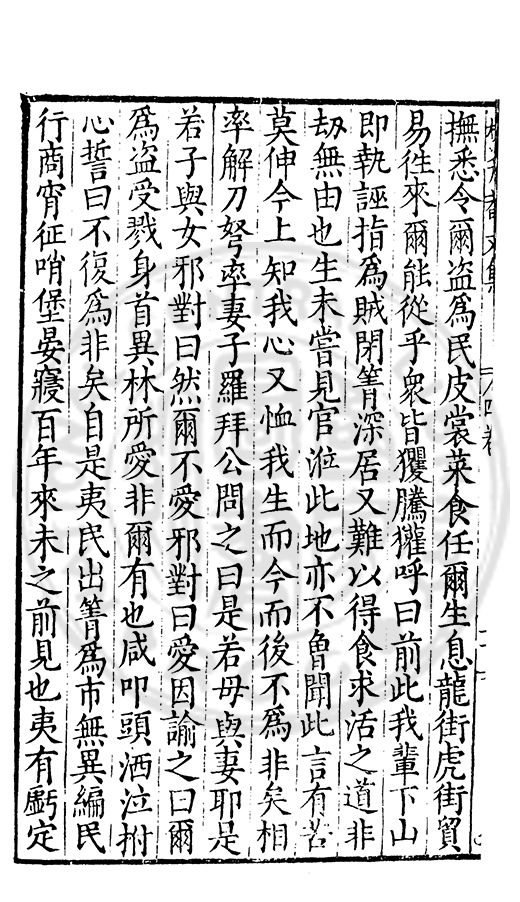 撫悉令爾盜為民皮裳菜食任爾生息龍街虎街貿
易徃來爾能從乎衆皆玃騰玃呼曰前此我輩下山
即執誣指為賊閉箐深居又難以得食求活之道非
刼無由也生未嘗見官涖此地亦不曾聞此言有苦
莫伸今上知我心又恤我生而今而後不為非矣相
率解刀弩率妻子羅拜公問之曰是若母與妻耶是
若子與女邪對曰然爾不愛邪對曰愛因諭之曰爾
為盜受戮身首異林所愛非爾有也咸叩頭洒泣拊
心誓曰不復為非矣自是夷民出箐為市無異編民
行商宵征哨堡晏寢百年來未之前見也夷有虧定